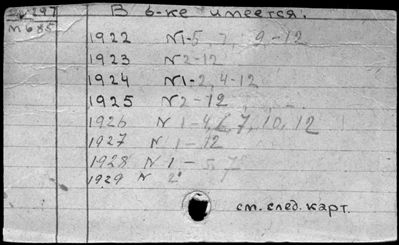 В б-ке имеется:
М 685
1922 N1-5, 7, 9-12
1923 N2-12
1924 N1-2, 4-12
1925 N2-12
1926 N 1-4, 6, 7, 10, 12
1927 N 1-12
1928 N 1-5, 7
1929 N 2
см. след. карт.